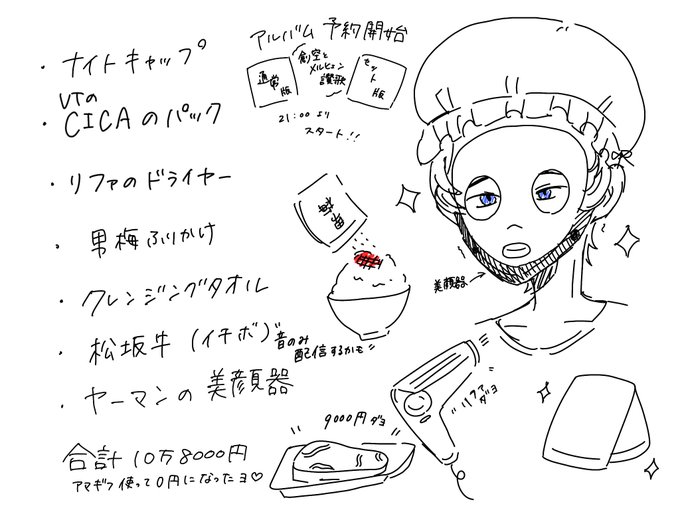 ・ナイトキャップ
・VTの
CICAのパック
・リファのドライヤー
・男梅ふりかけ
・クレンジングタオル
・松坂牛(イチボ)
・ヤーマンの美顔器
合計10万8000円
アマギフ使って0円になったヨ♡
アルバム予約開始
通常版
創空と
メルヒェン
讃歌
セット版
21:00より
スタート!!
男梅
美顔器
音のみ
配信するかも
リファダヨ
9000円ダヨ